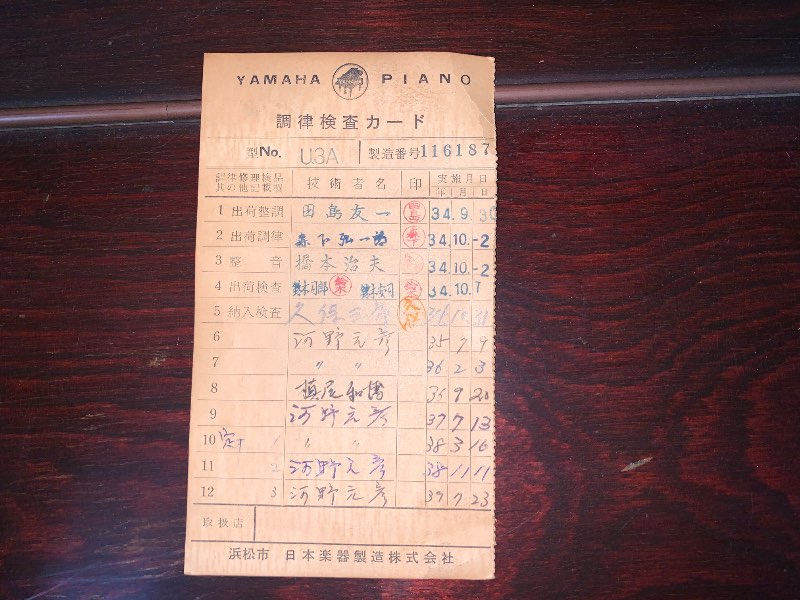 YAMAHA PIANO
調律検査カード
型No. U3A 製造番号 116187
調律修理検品其の他記載欄 技術者名 印 実施月日 年 月 日
1 出荷整調 田島友一 34.9.30
2 出荷調律 森下弘一 34.10.-2
3 整音 橋本治夫 34.10.-2
4 出荷検査 34.10.7
5 納入検査 久保
6 河野元彦 35 7 9
7 〃 〃 36 2 3
8 槙尾和 36 9 20
9 河野元彦 37 7 13
10 1 〃 〃 38 3 16
11 2 河野元彦 38 11 11
12 3 河野元彦 39 7 23
取扱店
浜松市 日本楽器製造株式会社